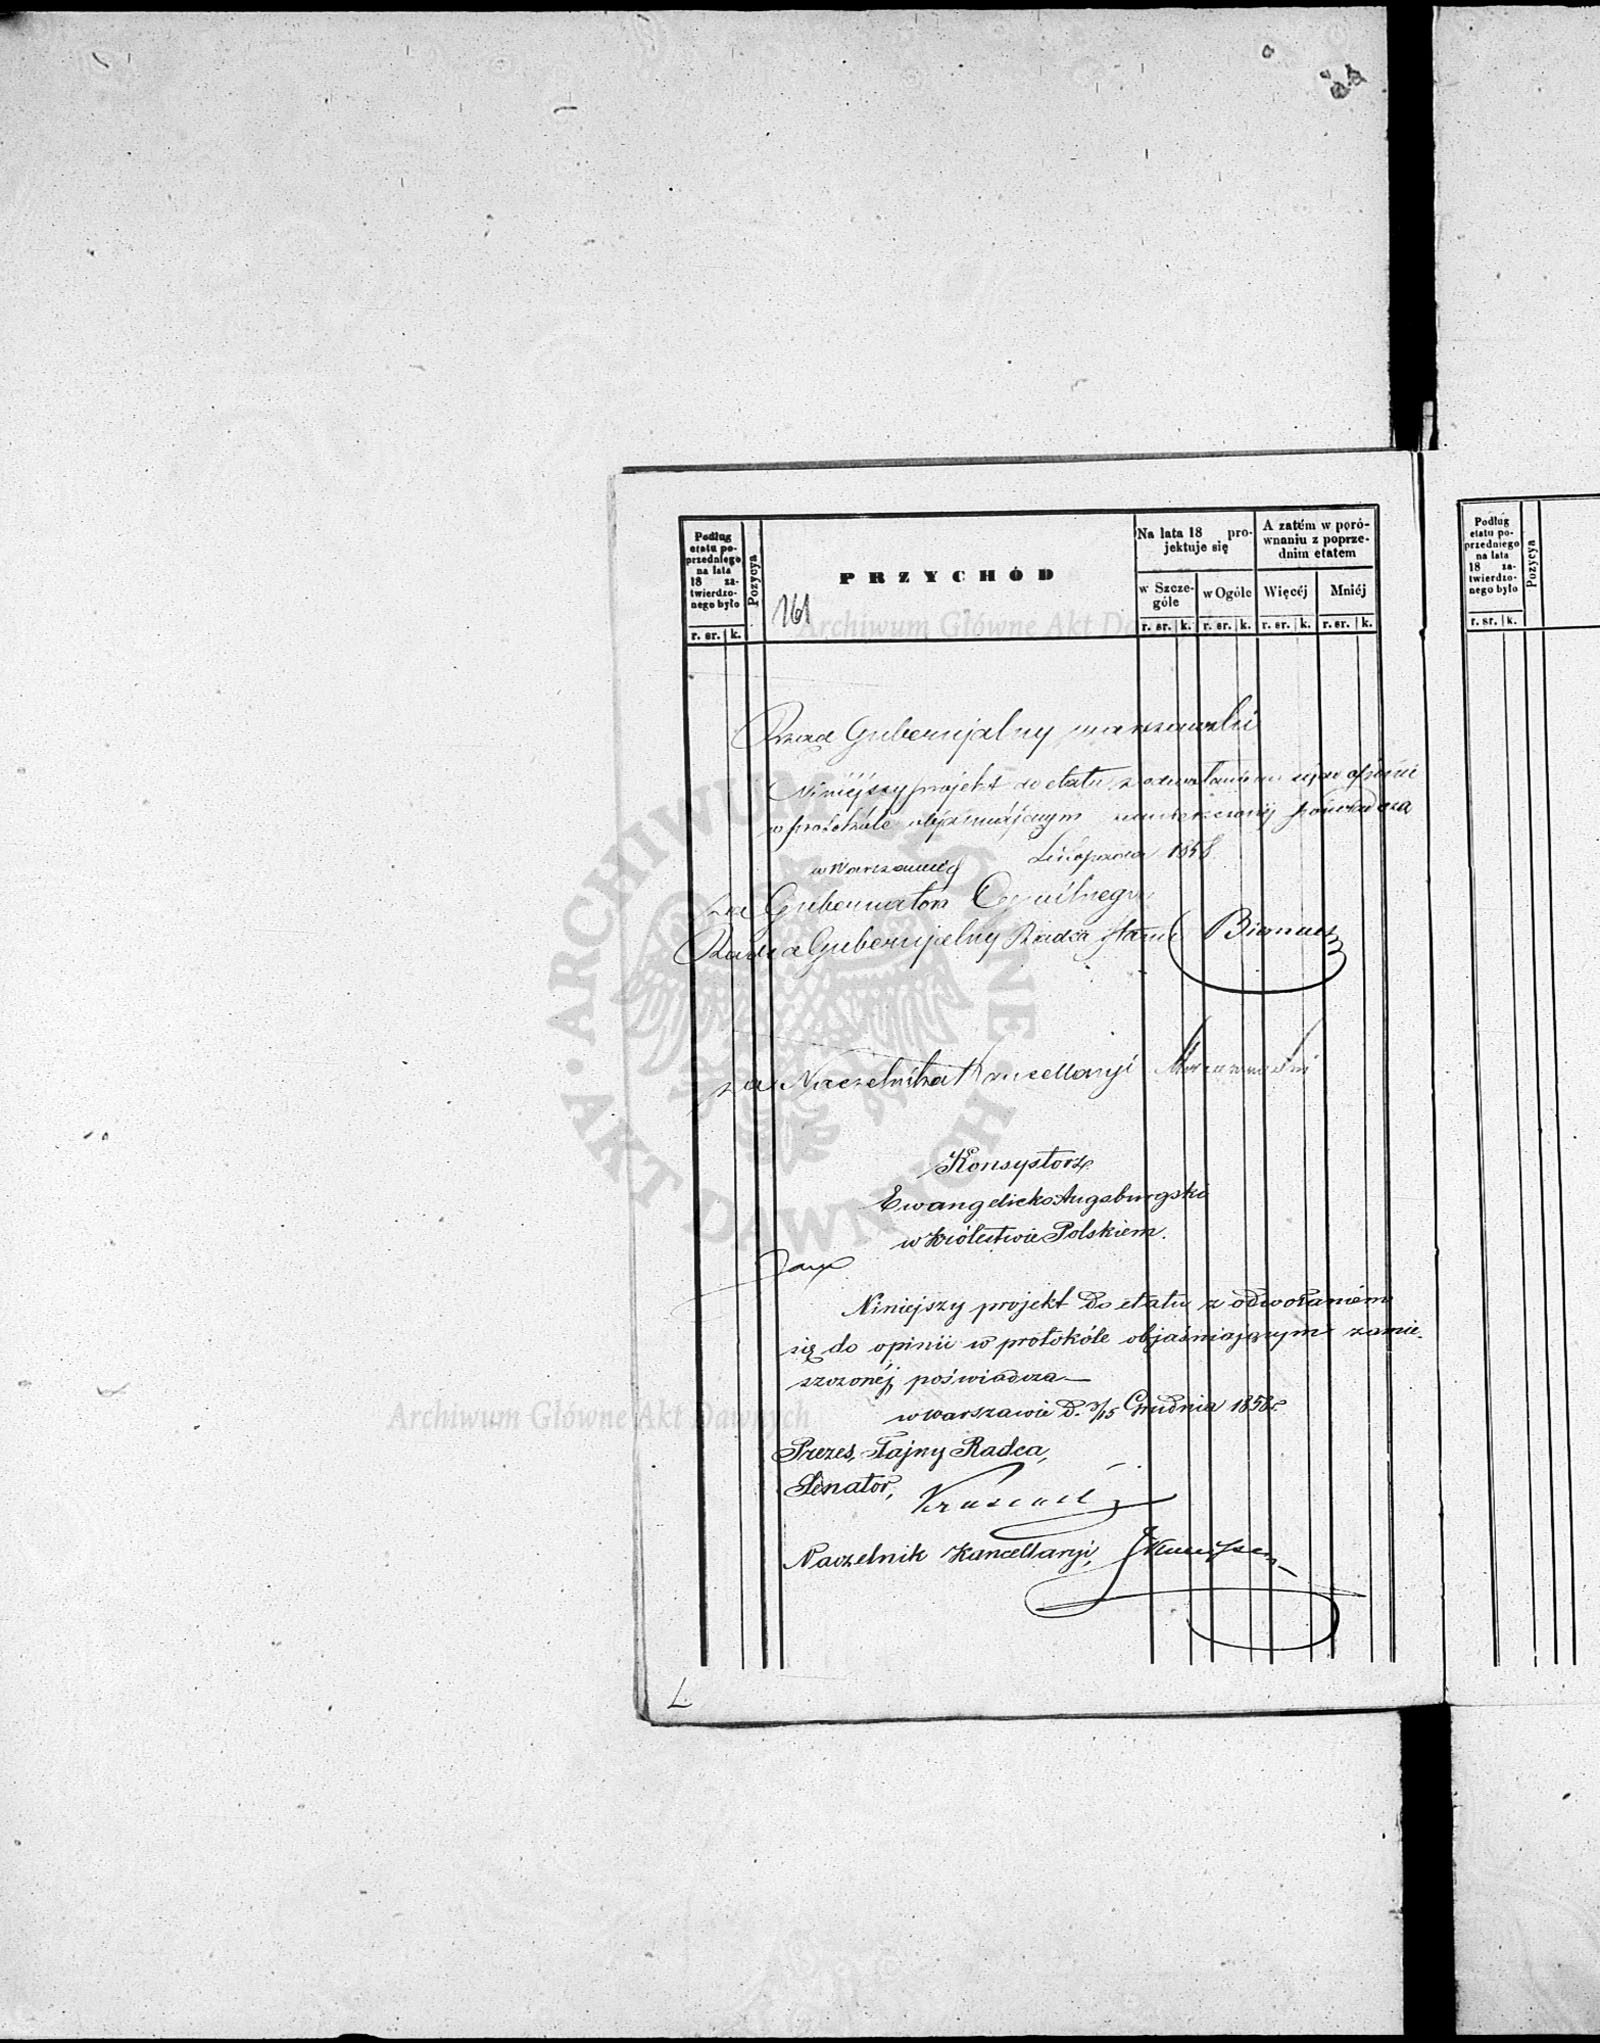 Podług etatu poprzedniego na lata 18 zatwierdzonego było
r. sr. k.
Pozycya
PRZYCHÓD
161
Na lata 18 projektuje się
w Szczególe
w Ogóle
A zatém w porównaniu z poprzednim etatem
Więcéj
Mniéj
r. sr. k. r. sr. k. r. sr. k. r. sr. k.
Rząd Gubernjalny warszawski
Niniéjszy projekt do etatu z odwołaniem się do opinii
w protokóle objaśniającym zamieszczonéj poświadcza
w Warszawie d Listopada 1858
za Gubernatora Cywilnego
Radca Gubernjalny Radca Stanu
za Naczelnika Kancellaryi
Konsystorz
Ewangelicko Augsburgski
w Królestwie Polskiem.
Niniejszy projekt do etatu z odwołaniem
się do opinii w protokóle objaśniającym zamie-
szczonéj poświadcza—
w Warszawie d. 3/15 Grudnia 1858 r.
Prezes, Tajny Radca,
Senator,
Naczelnik Kancellaryi,
L.
Podług etatu poprzedniego na lata 18 zatwierdzonego było
r. sr. k.
Pozycya
Archiwum Główne Akt Dawnych
ARCHIWUM GŁÓWNE AKT DAWNYCH
Archiwum Główne Akt Dawnych